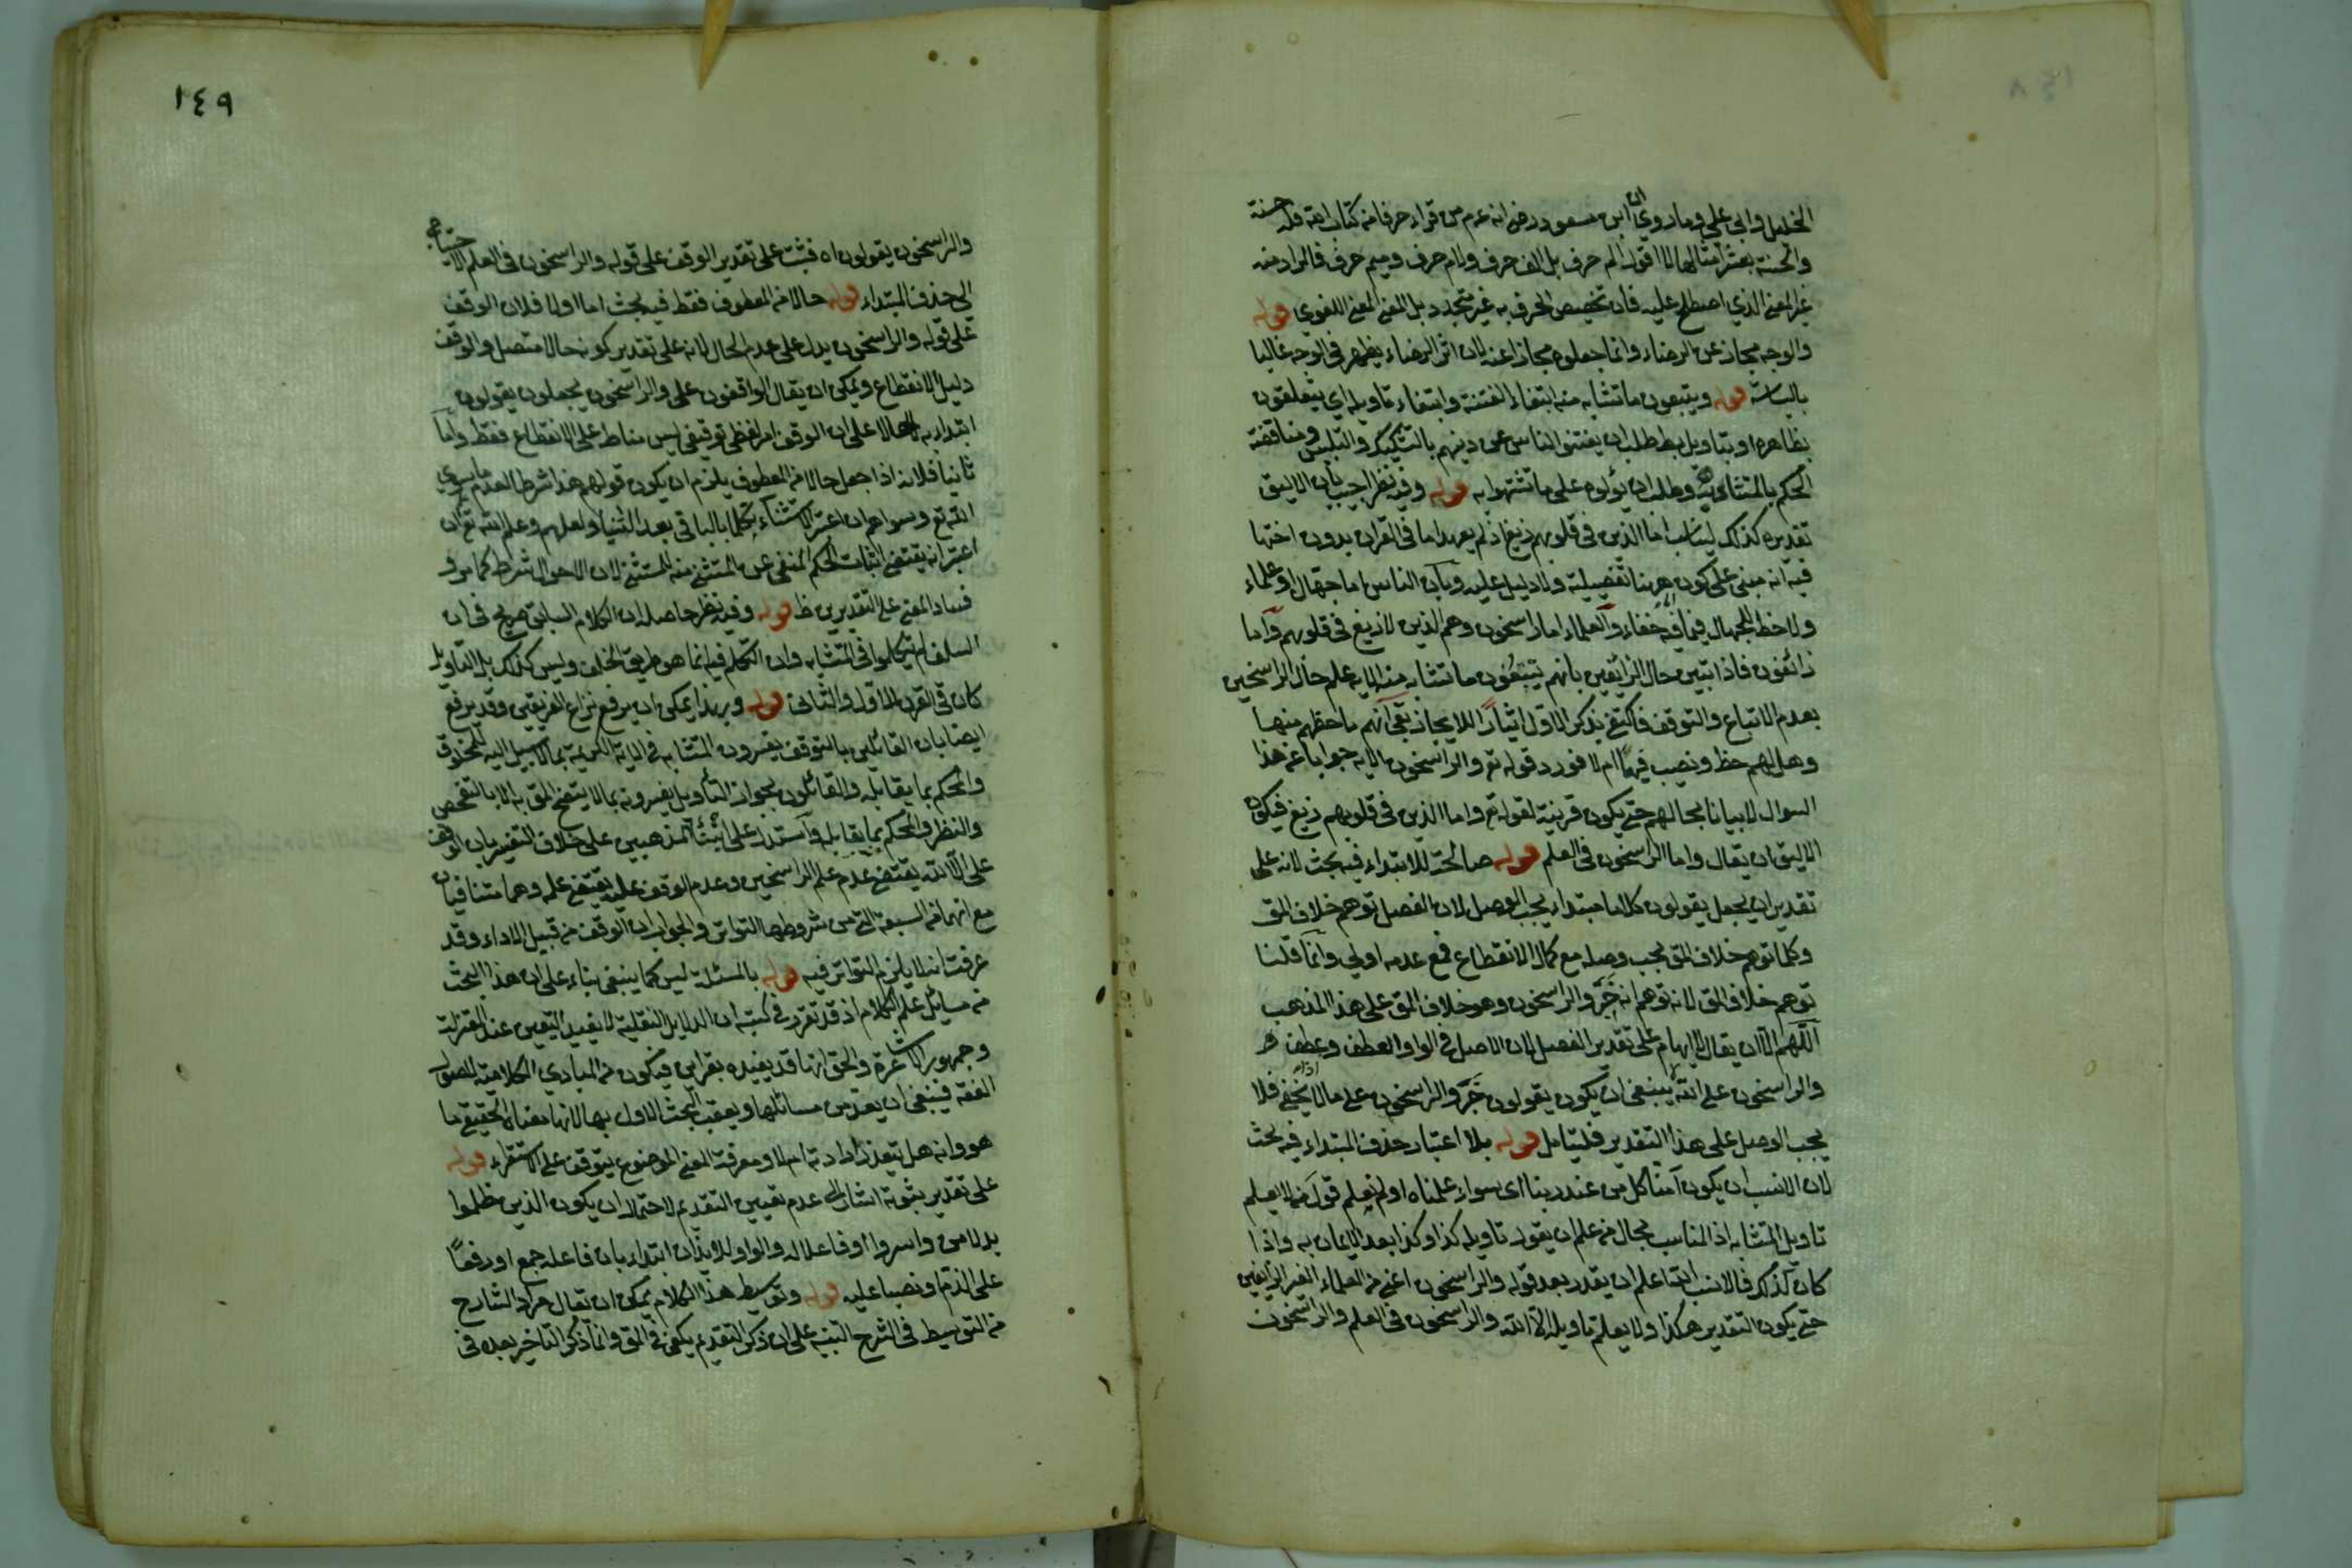 الخليل وابي علي وما روي ان ابن مسعود رضي انه عم من قراء حرفا من كتاب الله فله حسنة
والحسنة بعشر امثالها لا اقول الم حرف بل الف حرف ولام حرف وميم حرف فالمراد منه
غير المعنى الذي اصطلح عليه فان تخصيص الحرف به غير متجدد بل المعنى اللغوي قوله
والوجه مجاز عن الرضاء وانما جعلوه مجازا عنه لان اثر الرضاء يظهر في الوجه غالبا
قوله ويتبعون ما تشابه منه ابتغاء الفتنة وابتغاء تأويله اي يتعلقون
بظاهره او بتاويل باطل طلب ان يفتنوا الناس عن دينهم بالتشكيك والتلبيس ومناقضة
المحكم بالمتشابه وطلب ان يؤلوه على ما تشتهوا به قوله وفيه نظر اجيب بان الاليق
تقديره كذلك ليناسب اما الذين في قلوبهم زيغ اذ لم يعهد اما في القرآن بدون اختها
فيه انه مبني على كون ههنا تفصيلية ولا دليل عليه وبان الناس اما جهال او علماء
ولا حظ للجهال فيما فيه خفاء والعلماء اما راسخون وهم الذين لا زيغ في قلوبهم واما
زائغون فاذا تبين حال الزائغين بانهم يتبعون ما تشابه منه الايه علم حال الراسخين
بعدم الاتباع والتوقف فاكتفى بذكر الاول ايثارا للايجاز بقى انهم ما حظهم منها
وهل لهم حظ ونصيب فيها ام لا فورد قوله تع والراسخون الايه جوابا عن هذا
السوال لا بيانا بحالهم حتى يكون قرينة لقوله تع واما الذين في قلوبهم زيغ فيكون
الاليق ان يقال واما الراسخون في العلم قوله صالحة للابتداء فيه بحث لانه على
تقدير ان يجعل يقولون كلاما مبتداء يجب الوصل لان الفصل توهم خلاف المق
وكلما توهم خلاف المق يجب وصله مع كمال الانقطاع فمع عدمه اولى وانما قلنا
توهم خلاف المق لانه توهم انه خبر والراسخون وهو خلاف المق على هذا المذهب
اللهم الا ان يقال لا ايهام على تقدير الفصل لان الاصل في الواو العطف وعطف
والراسخون على الله ينبغي ان يكون يقولون خبر والراسخون على ما لا يخفى فلا
يجب الوصل على هذا التقدير فليتامل قوله بلا اعتبار حذف المبتداء فيه بحث
لان الانسب ان يكون آمنا كل من عند ربنا اى سواء علمناه او لم نعلم قول من لا يعلم
تاويل المتشابه اذ المناسب بحال من علم ان يقول تاويله كذا وكذا بعد الايمان به واذا
كان كذلك فالانسب ان يقدر بعد قوله والراسخون اعني من العلماء الغير الزايغين
حتى يكون التقدير هكذا ولا يعلم تاويله الا الله والراسخون في العلم والراسخون
١٤٩
والراسخون يقولون اه فيثبت على تقدير الوقف على قوله والراسخون في العلم الاحتياج
الى حذف المبتداء قوله حالا من المعطوف فقط فيه بحث اما اولا فلان الوقف
على قوله والراسخون يدل على عدم الحال لانه على تقدير كونه حالا متصل والوقف
دليل الانقطاع ويمكن ان يقال الواقفون على والراسخون يجعلون يقولون
على ان الوقف امر لفظي توقيفي ليس مناط على الانقطاع فقط واما
ثانيا فلانه اذا جعل حالا من المعطوف يلزم ان يكون قولهم هذا شرطا لعدم ما سوى
الله تع وسواهم ان اعتبر الاستثناء تكلما بالباقي بعد الثنيا ولعلهم وعلم الله تع ان
اعتبر انه يقتضي اثبات الحكم المنفي عن المستثنى منه للمستثنى لان الاحوال شرط كما مر و
فساد المعنى على التقديرين ظ قوله وفيه نظر حاصله ان الكلام السابق صريح في ان
السلف لم يتكلموا في المتشابه وان التكلم فيه انما هو طريق الخلف وليس كذلك بل التاويل
كان في القرن الاول والثاني قوله وبهذا يمكن ان يرفع نزاع الفريقين وقد يرفع
ايضا بان القائلين بالتوقف يفسرون المتشابه في الاية الكريمة بما لا سبيل اليه للمخلوق
والمحكم بما يقابله والقائلون بجواز التأويل يفسرونه بما لا يتضح المق به الا بالتفحص
والنظر والمحكم بما يقابله واستدل على المذهبين على خلاف التفسير بان الوقف
على الا الله يقتضي عدم علم الراسخين وعدم الوقف عليه يقتضي علمه وهما متنافيان
مع انهما من السبعة التي من شروطها التواتر والجواب ان الوقف من قبيل الاداء وقد
عرفت انه لا يلزم التواتر فيه قوله بالمسئلة ليس كما ينبغي بناء على ان هذا البحث
من مسائل علم الكلام اذ قد تقرر في كتبه ان الدلايل النقلية لا يفيد اليقين عند المعتزلة
وجمهور الاشاعرة والحق انها قد يفيده بقراين فيكون من المبادي الكلامية لاصول
الفقه فينبغي ان يعد من مسائلها ويعقب البحث الاول بها لانها معناه الحقيقي ما
هو وانه هل يتعذر ارادته ام لا ومعرفة المعنى الموضوع يتوقف على الاستقراء قوله
على تقدير ثبوته اشارة الى عدم تعيين التقديم لاحتمال ان يكون الذين ظلموا
بدلا من واسروا او فاعلا له والواو للايذان ابتداء بان فاعله جمع او رفعا
على الذم او نصبا عليه قوله وتوسيط هذا الكلام يمكن ان يقال مراد الشارح
من التوسيط في الشرح التنبيه على ان ذكر التقديم يكفي في المق وانما ذكر التاخير بعده في